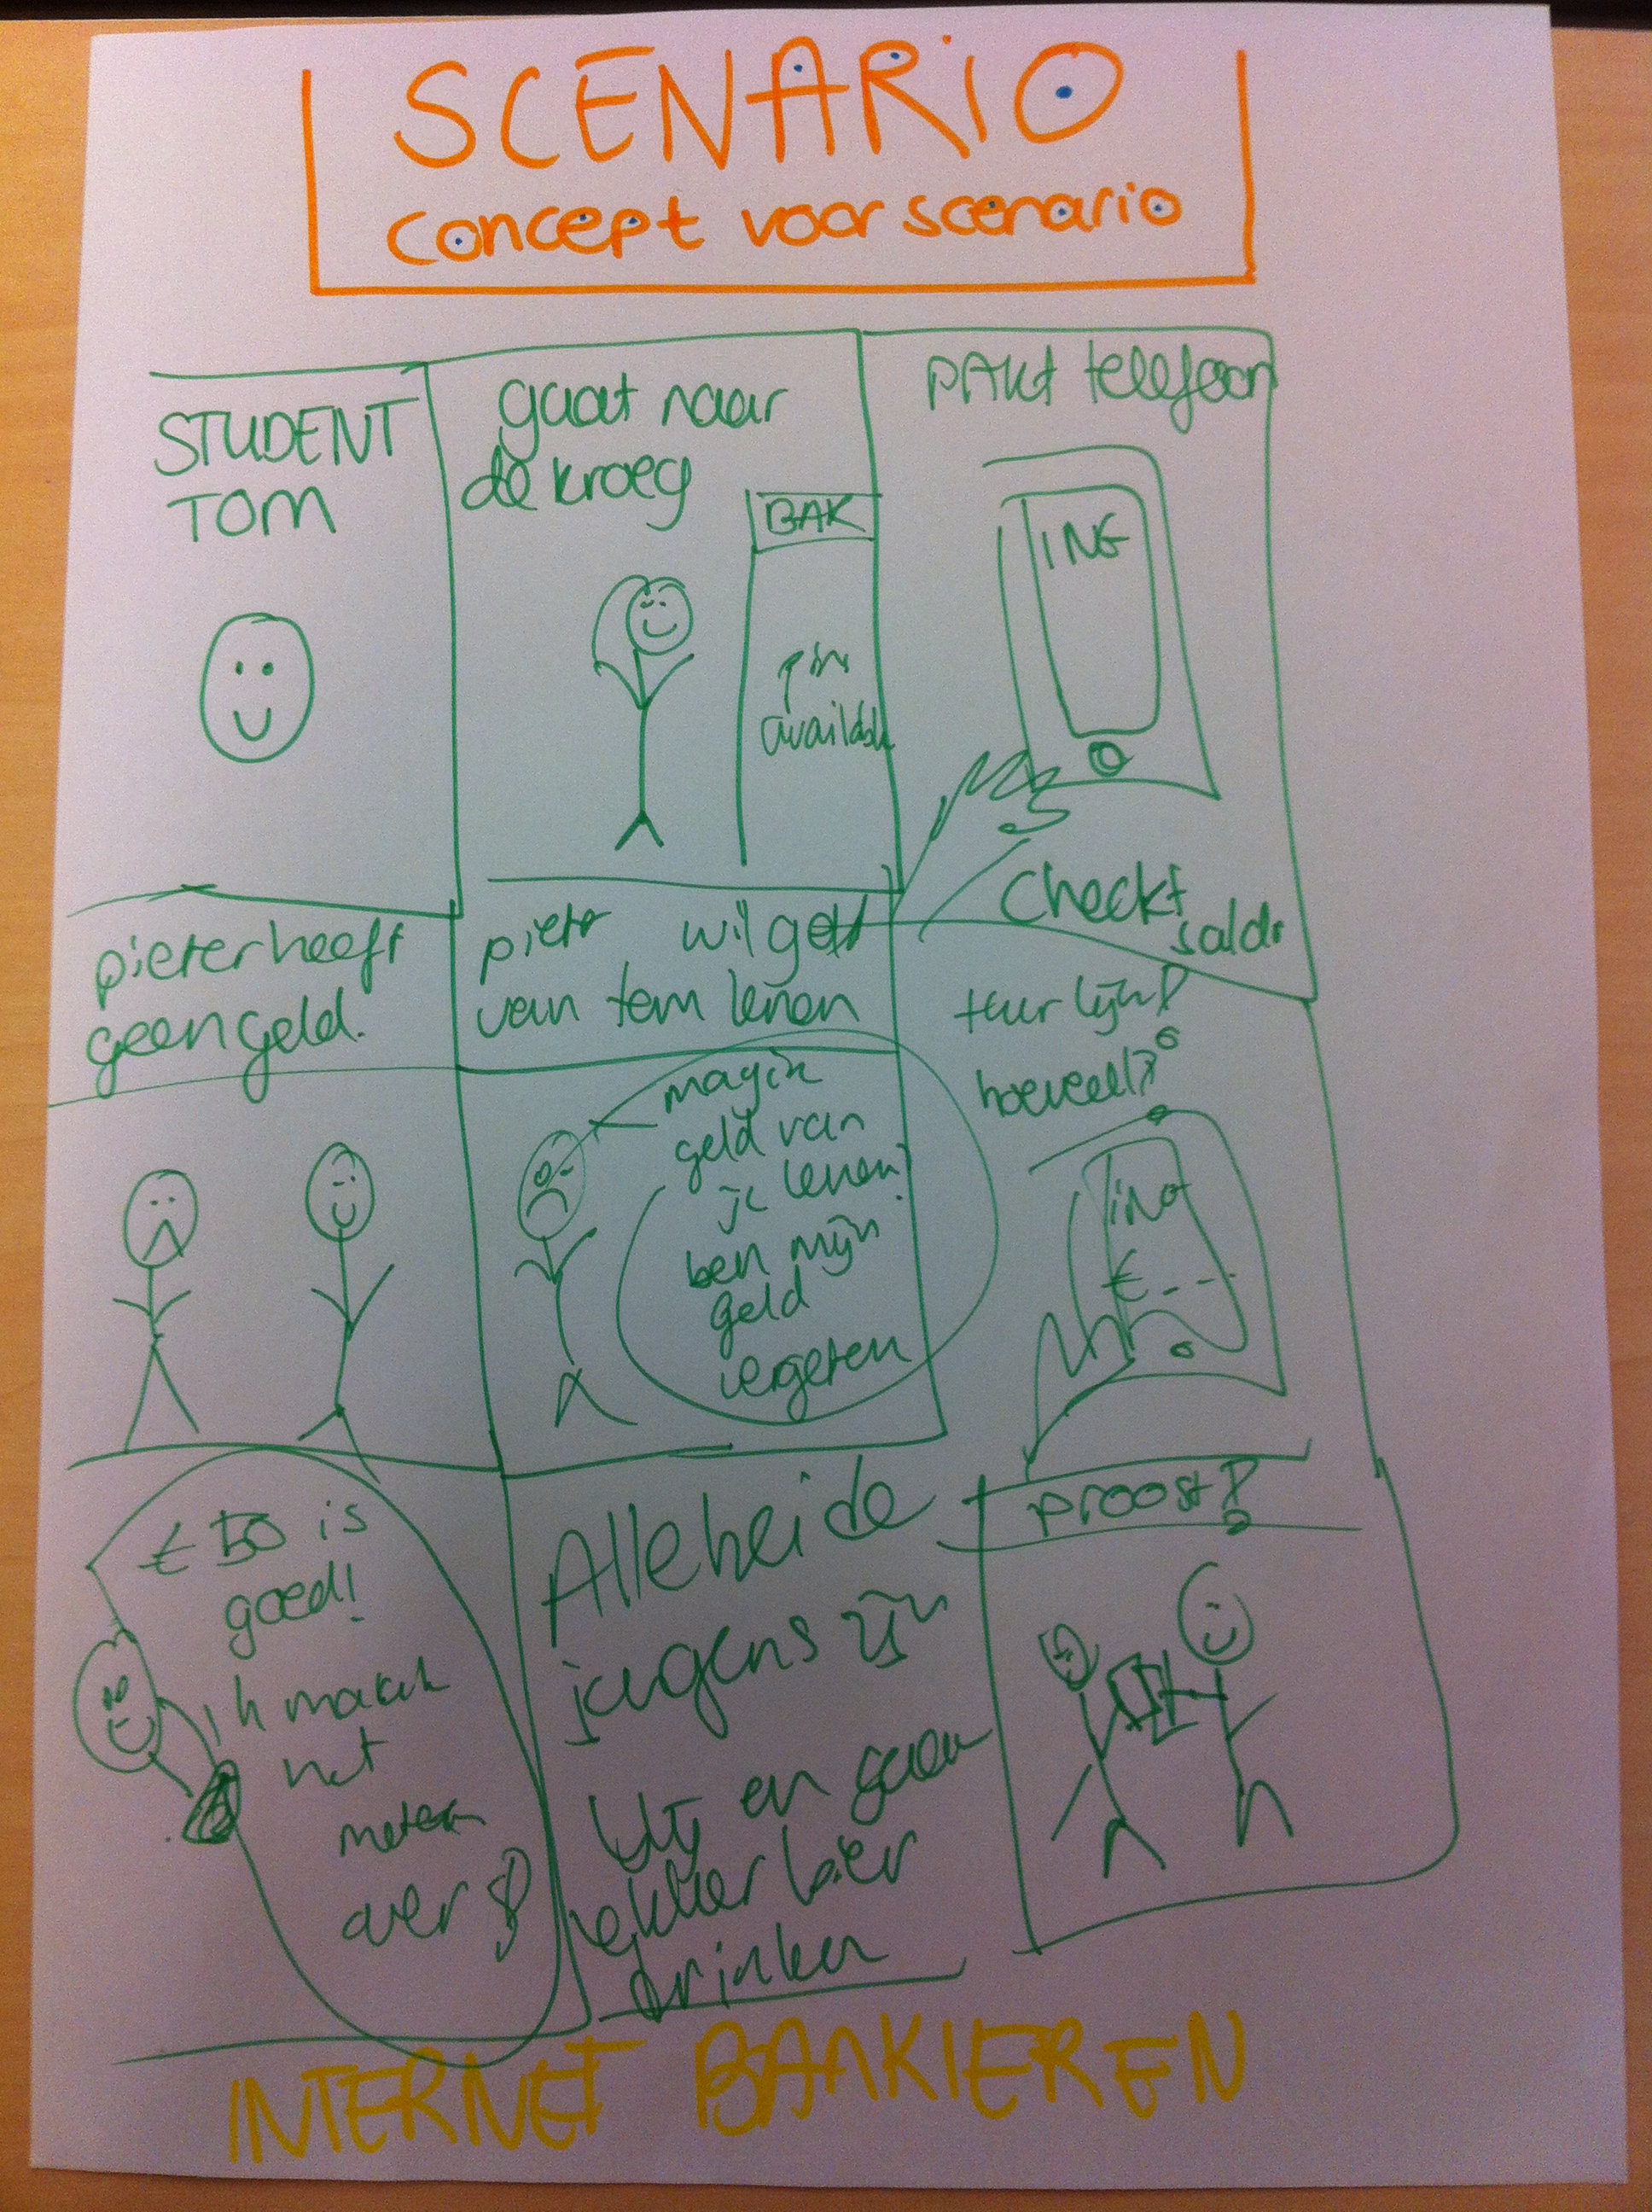 SCENARIO
concept voor scenario
STUDENT
TOM
gaat naar
de kroeg
BAK
pin
availabl
PAKt telefoon
ING
Checkt
saldo
pieter heeft
geen geld.
pieter wil geld
van tom lenen
mag ik
geld van
je lenen?
ben mijn
geld
vergeten
tuurlijk!
hoeveel?
ING
€ - - -
€ 50 is
goed!
ik maak
het
meteen
over!
Allebeide
jongens zijn
blij en gaan
lekker bier
drinken
proost!
INTERNET BANKIEREN